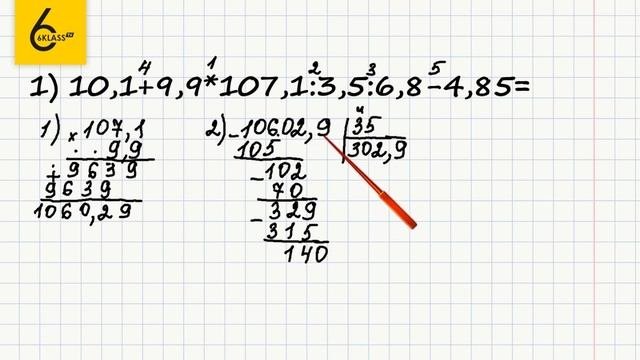 6
6KLASS TV
4 1 2 3 5
1) 10,1+9,9*107,1:3,5:6,8-4,85=
1) × 107,1
. . 9,9
+ 9639
9639
1060,29
2) - 10602,9 | 35
105 302,9
- 102
70
- 329
315
140